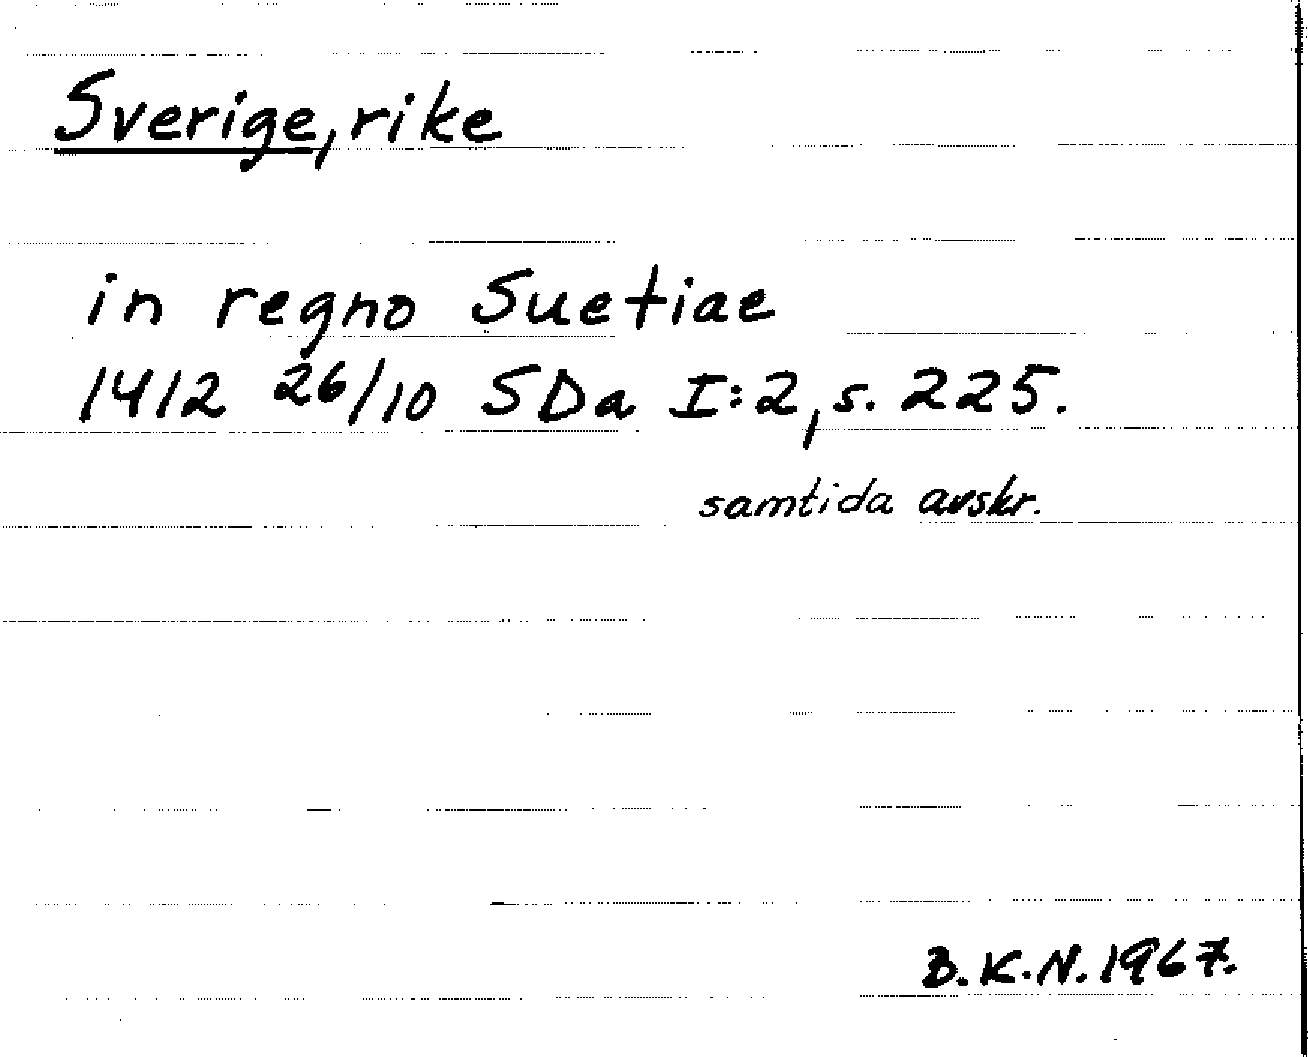 Sverige, rike
in regno Suetiae
1412 26/10 SDa I:2, s. 225.
samtida avskr.
B.K.N. 1967.